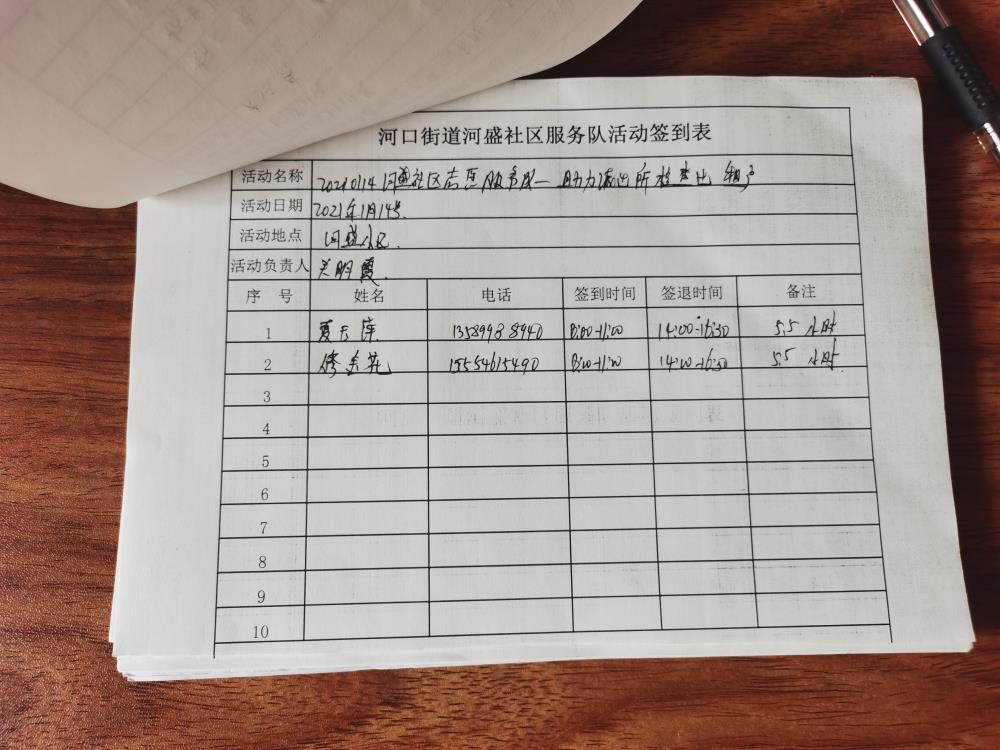 河口街道河盛社区服务队活动签到表
活动名称 20210114河盛社区志愿服务队—助力派出所检查出租户
活动日期 2021年1月14号.
活动地点 河盛小区.
活动负责人 关明霞
序 号 姓名 电话 签到时间 签退时间 备注
1 夏 萍 13589938940 8:00-11:00 14:00-16:30 5.5 小时
2 修金花 15554615490 8:00-11:00 14:00-16:30 5.5 小时.
3
4
5
6
7
8
9
10